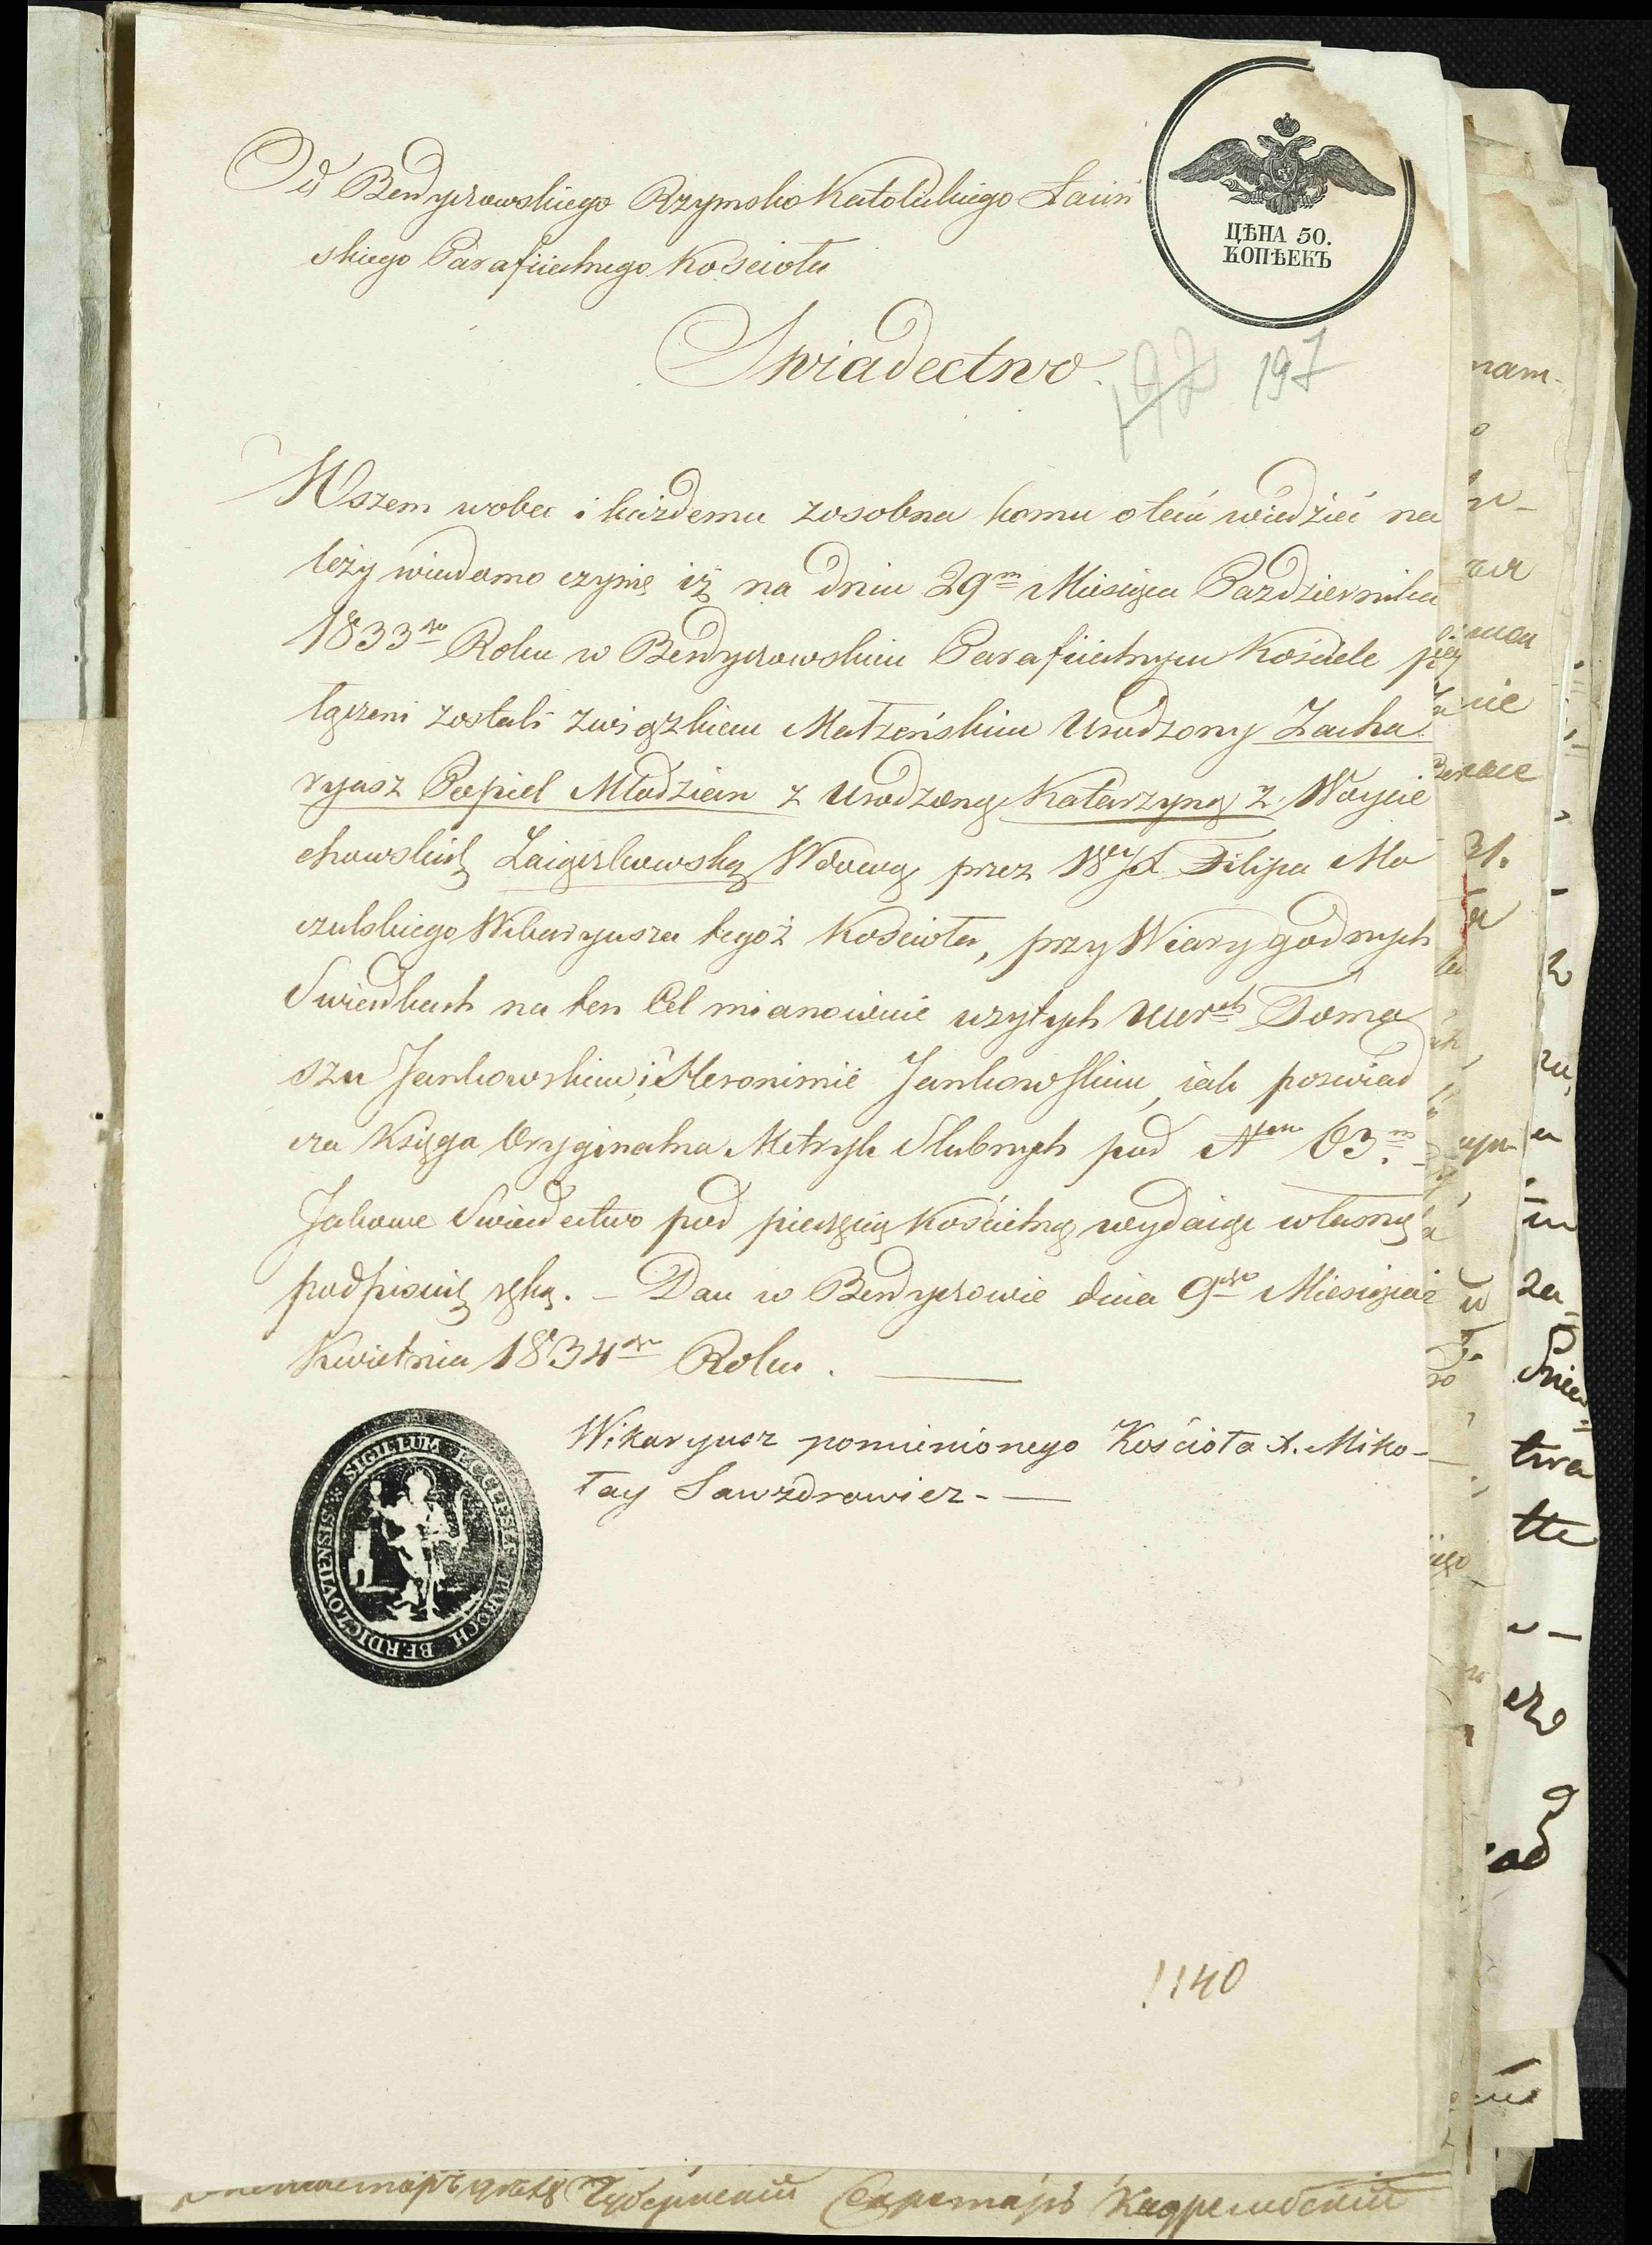 Od Berdyczowskiego Rzymsko Katolickiego Łaciń
skiego Parafiialnego Kościoła
ЦѢНА 50.
КОПѢЕКЪ
Swiadectwo.
192 197
Wszem wobec i każdemu zosobna komu otém wiedzieć na
leży wiadomo czynię iż na dniu 29m Miesiąca Pazdziernika
1833go Roku w Berdyczowskim Parafiialnym Kościele po
łączeni zostali związkiem Małżeńskim Urodzony Zacha
ryasz Popiel Młodzian z Urodzoną Katarzyną z Woycie
chowskich Zaigczkowską Wdową przez WJX Filipa Mo
czulskiego Wikaryusza tegoż Kościoła, przy Wiary godnych
Swiadkach na ten Cel mianowicie użytych Uurch Toma
szu Jankowskim i Hieronimie Jankowskim, iak poswiad
cza Księga Oryginalna Metryk Slubnych pod Nrem 63.m
Jakowe Swiadectwo pod pieczęcią Kościelną wydaiąc własną
podpisuię ręką. – Dan w Berdyczowie dnia 9go Miesiąca
Kwietnia 1834go Roku.
Wikaryusz pomienionego Kościoła X. Miko-
łay Sawzdrowicz-
SIGILLUM ECCLESIÆ PAROCH BERDICZOVIENSIS
1140
Губернскій Секретарь